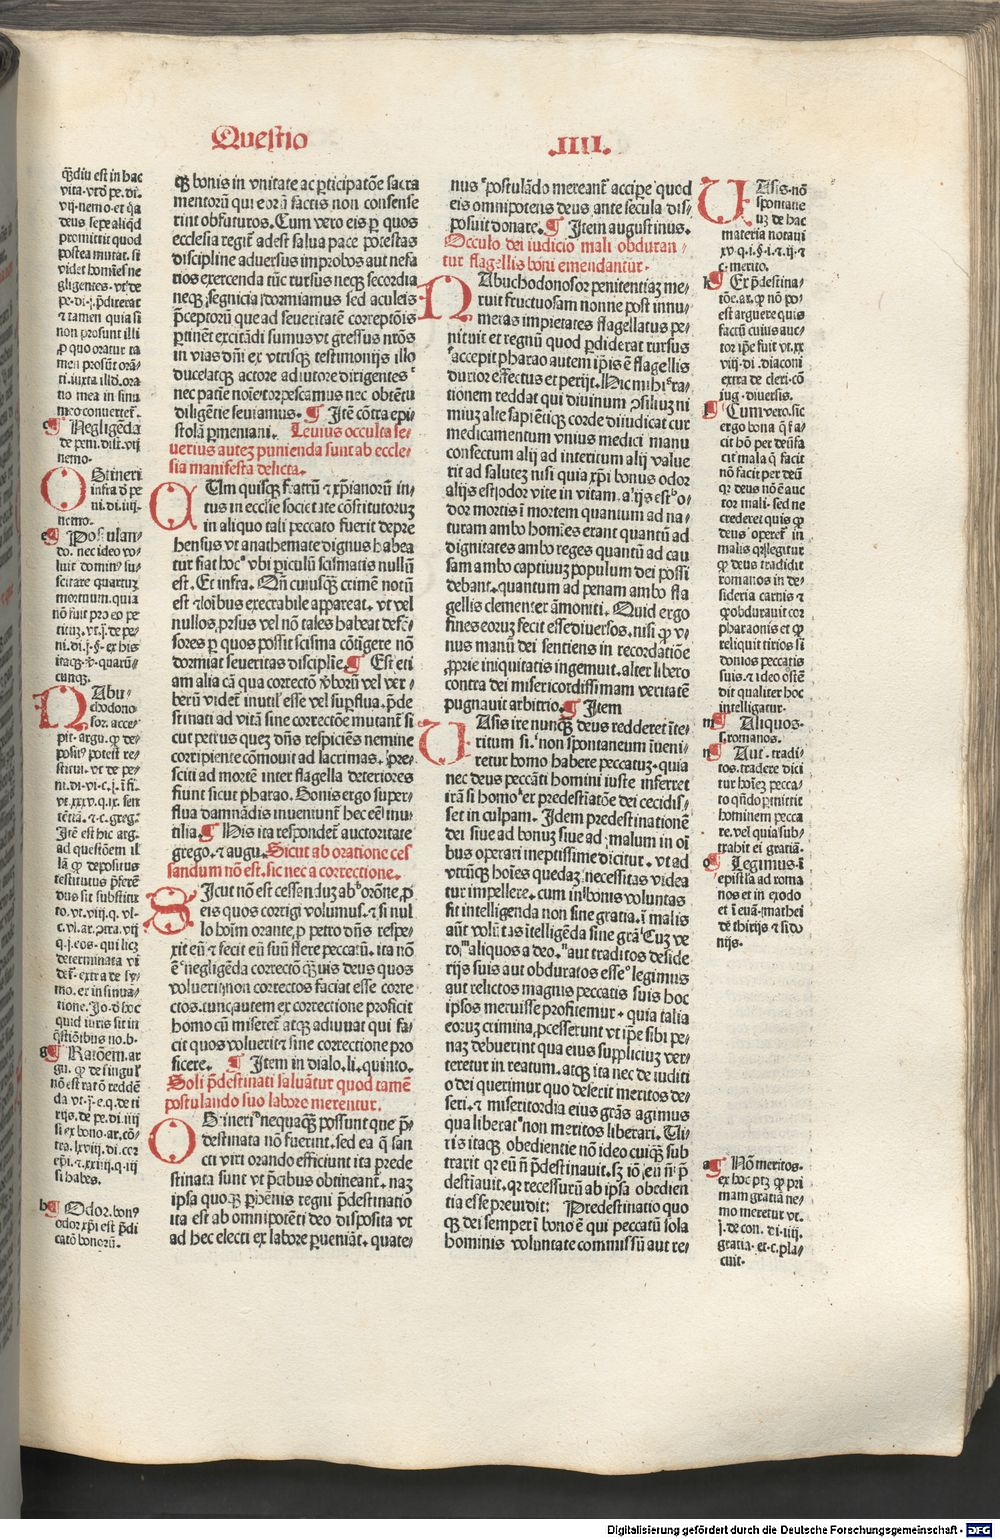 Questio
.IIII.
q̃diu est in hac
vita. vt d̃ pe. di.
vij. nemo. et q̃a
deus sepe aliq̃d
promittit quod
postea mutat. si
videt homĩes ne
gligentes. vt de
pe. di. j. p̃diterat
⁊ tamen quia si
non prosunt illi
ꝓ quo oratur ta
men prosũt orã/
ti. iuxta illđ. ora
tio mea in sinu
meo conuertet̃.
Negligẽda
de peni. dist. vij
nemo.
OBtineri
infra d̃ pe
ni. di. iiij.
nemo.
Postulan/
do. nec ideo vo/
luit domin⁹ su/
scitare quartuz
mortuum. quia
nõ fuit pro eo pe
titũz. vt. j. de pe/
ni. di. j. §. ex his
itaq̃. ꝟ. quarũ/
cunq̃.
NAbu/
chodono
sor. acce/
pit. argu. ꝙ de/
posit⁹ potest re/
stitui. vt de pe/
ni. di. vi. c. j. ĩ fi.
vt. xxv. q. ix. sen
tẽtia. ⁊ c. greg.
Itẽ est hic arg.
ad questiõem il
lã ꝙ depositus
restitutus p̃feren
dus sit substitu
to. vt. viij. q. vl/
c. vl. ar. ↄtra. vij
q. j. eos. qui licz
determinata vi
det̃. extra de sy/
mo. et insinua/
tione. Jo. d̃ hoc
quid iuris sit in
q̃stiõibus no. b.
Ratiõem. ar
gu. ꝙ de singul̃
nõ est ratõ reddẽ
da vt. j. e. q. de ti
rijs. de pe. di. iiij
si ex bono. ar. cõ/
tra. lxviij. di. cor
ep̃i. ⁊. xxiij. q. iij
si habes.
Odor. bon⁹
odor xp̃i est p̃di
catõ bonorũ.
q̃ bonis in vnitate ac ꝑticipatõe sacra
mentorũ qui eorũ factis non consense
rint obfuturos. Cum vero eis ꝑ quos
ecclesia regit̃ adest salua pace potestas
discipline aduersus improbos aut nefa
rios exercenda tũc rursus necq̃ secordia
necq̃ segnicia dormiamus sed aculeis
p̃ceptorũ que ad seueritatẽ correptõis
ꝑtinẽt excitãdi sumus vt gressus nr̃os
in vias dñi ex vtrisq̃ testimonijs illo
duce atq̃ actore adiutore dirigentes
nec patiẽ noĩe torpescamus nec obtẽtu
diligẽtie seuiamus. Itẽ cõtra epi/
stolã ꝑmeniani. Leuius occulta se/
uerius autez punienda sunt ab eccle/
sia manifesta delicta.
CUm quisq̃ fratrũ ⁊ xp̃ianorũ in/
tus in ecclie societate cõstitutoruz
in aliquo tali peccato fuerit depre
hensus vt anathemate dignus habea
tur fiat hoc vbi periculũ scismatis nullũ
est. Et infra. Qñ cuiusq̃ crimẽ notũ
est ⁊ oĩbus execrabile appareat. vt vel
nullos ꝓrsus vel nõ tales habeat defẽ/
sores ꝑ quos possit scisma cõtigere nõ
dormiat seueritas disciplĩe. Est eti
am alia cã qua correctõ ꝟborũ vel ver/
berũ videt̃ inutil̃ esse vel suꝑflua. p̃de
stinati ad vitã sine correctõe mutant̃ si
cut petrus quez dñs respiciẽs nemine
corripiente cõmouit ad lacrimas. pre/
sciti ad mortẽ inter flagella deteriores
fiunt sicut pharao. Bonis ergo super/
flua damnãdis inueniunt̃ hec eẽ inu/
tilia. His ita respondet̃ auctoritate
grego. ⁊ augu. Sicut ab oratione ces
sandum nõ est. sic nec a correctione.
SIcut nõ est cessanduz ab orõne ꝓ
eis quos corrigi volumus. ⁊ si nul
lo hoĩm orante ꝓ petro dñs respe/
xit eũ ⁊ fecit eũ suũ flere peccatũ. ita nõ
ẽ negligẽda correctõ q̃uis deus quos
voluerit non correctos faciat esse corre
ctos. tunc autem ex correctione proficit
homo cũ miseret̃ atq̃ adiuuat qui fa/
cit quos voluerit ⁊ sine correctione pro
ficere. Item in dialo. li. quinto.
Soli p̃destinati saluãtur quod tamẽ
postulando suo labore merentur.
OBtineri nequaq̃ possunt que p̃/
destinata nõ fuerint. sed ea q̃ san
cti viri orando efficiunt ita prede
stinata sunt vt p̃cibus obtineant̃. naz
ipsa quoq̃ ꝑhẽnis regni p̃destinatio
ita est ab omnipotẽti deo disposita vt
ad hec electi ex labore ꝑueniãt. quate/
nus postulãdo mereant̃ accipe quod
eis omnipotens deus ante secula dis/
posuit donare. Item augustinus.
Occulto dei iudicio mali obduran/
tur flagellis boni emendantur.
NAbuchodonosor penitentiaz me/
ruit fructuosam nonne post innu/
meras impietates flagellatus pe/
nituit et regnũ quod ꝑdiderat rursus
accepit pharao autem ip̃is ẽ flagellis
durior effectus et perijt. Hic mihi ra/
tionem reddat qui diuinum ↄsiliuz ni
miuz alte sapiẽtiq̃ corde diiudicat cur
medicamentum vnius medici manu
confectum alij ad interitum alij value
rit ad salutez nisi quia xp̃i bonus odor
alijs est odor vite in vitam. alijs est o/
dor mortis ĩ mortem quantum ad na/
turam ambo homĩes erant quantũ ad
dignitates ambo reges quantũ ad cau
sam ambo captiuuz populum dei possi
debant. quantum ad penam ambo fla
gellis clementer ãmoniti. Quid ergo
fines eoruz fecit esse diuersos. nisi ꝙ v/
nus manũ dei sentiens in recordatiõe
ꝓprie iniquitatis ingemuit. alter libero
contra dei misericordissimam veritatẽ
pugnauit arbitrio. Item
VAsis ire nunq̃ deus redderet ĩte/
ritum si non spontaneum ĩueni/
retur homo habere peccatuz. quia
nec deus peccãti homini iuste inferret
irã si homo er predestinatõe dei cecidis/
set in culpam. Idem predestinationẽ
dei siue ad bonuz siue ad malum in oĩ
bus operari ineptissime dicitur. vt ad
vtrũq̃ hoĩes quedaz necessitas videa
tur impellere. cum in bonis voluntas
sit intelligenda non sine gratia. ĩ malis
aũt volũtas ĩtelligẽda sine grã. Cuz ve
ro aliquos a deo aut traditos deside
rijs suis aut obduratos esse legimus
aut relictos magnis peccatis suis hoc
ipsos meruisse profitemur. quia talia
eoruz crimina ꝓcesserunt vt ip̃e sibi pe/
naz debuerint qua eius suppliciuz ver/
teretur in reatum. atq̃ ita nec de iuditi
o dei querimur quo deserit meritos de/
seri. ⁊ misericordia eius grãs agimus
qua liberat non meritos liberari. Ui/
ris itaq̃ obedientie nõ ideo cuiq̃ sub
traxit qr eũ ñ p̃destinauit. sz iõ eũ ñ p̃
destiauit. qr recessurũ ab ipsa obedien
tia esse preuidit. Predestinatio quo
q̃ dei semper ĩ bono ẽ qui peccatũ sola
hominis voluntate commissũ aut re/
VAsis. nõ
spontanee
uz de hac
materia notaui
xv. q. i. §. i. ⁊. ij. ⁊
c. merito.
Ex p̃destina/
tõe. ar. ꝙ nõ po/
est arguere quis
factũ cuius auc/
tor ip̃e fuit vt. xx
viij. di. diaconi
extra de cleri. cõ
iug. diuersis.
Cum vero. sic
ergo bona q̃ fa/
cit hõ per deũ fa
cit mala q̃ facit
nõ facit per deũ
qr deus nõ ẽ auc
tor mali. sed ne
crederet quis ꝙ
deus operet̃ in
malis qr legitur
ꝙ deus tradidit
romanos in de/
sideria carnis ⁊
ꝙ obdurauit cor
pharaonis et ꝙ
reliquit tirios si
donios peccatis
suis. ⁊ ideo ostẽ
dit qualiter hoc
intelligatur.
Aliquos.
s. romanos.
Aut. tradi/
tos. tradere dici
tur hoĩez pecca/
to qñdo ꝑmittit
hominem pecca
re. vel quia sub/
trahit ei gratiã.
Legimus. ĩ
epistl̃a ad roma
nos et in exodo
et ĩ euã. mathei
de thirijs ⁊ sido
nijs.
Nõ meritos.
ex hoc ptz ꝙ pri
mam gratiã ne/
mo meretur vt.
j. de con. di. iiij.
gratia. et. c. pla/
cuit.
Digitalisierung gefördert durch die Deutsche Forschungsgemeinschaft - DFG